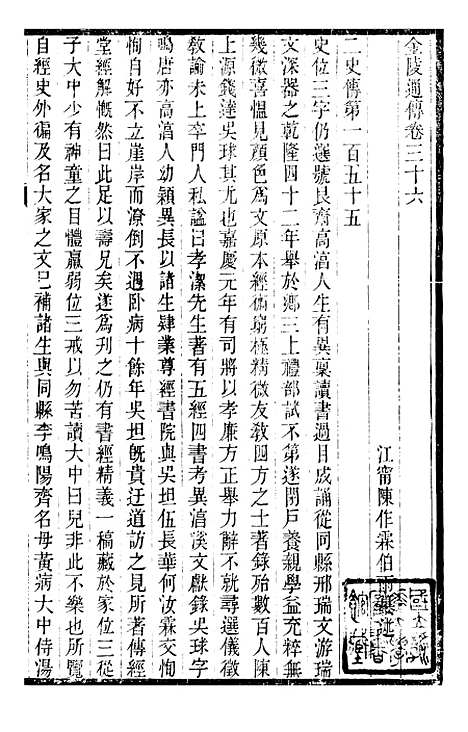 金陵通傳卷三十六
江甯陳作霖伯雨
二史傳第一百五十五
史位三字仍選號艮齋高淳人生有異稟讀書過目成誦從同縣邢瑞文游瑞
文深器之乾隆四十二年舉於鄉三上禮部試不第遂閉戶養親學益充粹無
幾微喜慍見顏色爲文原本經術窮極精微友敎四方之士著錄殆數百人陳
上源錢達吳球其尤也嘉慶元年有司將以孝廉方正舉力辭不就尋選儀徵
敎諭未上卒門人私諡曰孝潔先生著有五經四書考異淳溪文獻錄吳球字
鳴唐亦高淳人幼穎異長以諸生肄業尊經書院與吳坦伍長華何汝霖交恂
恂自好不立崖岸而潦倒不遇卧病十餘年吳坦旣貴迂道訪之見所著傳經
堂經解慨然曰此足以壽兄矣遂爲刋之仍有書經精義一稿藏於家位三從
子大中少有神童之目體羸弱位三戒以勿苦讀大中曰兒非此不樂也所覽
自經史外徧及名大家之文已補諸生與同縣李鳴陽齊名母黃病大中侍湯